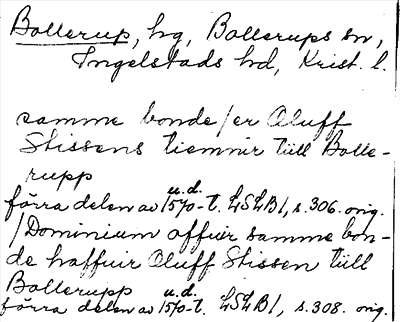 Bollerup, hg, Bollerups sn,
Ingelstads hd, Krist. l.
samme bonde/er Oluff
Stissens tiemnir tiill Bolle-
rupp
u.d.
förra delen av 1570-t. LSLB1, s. 306. orig.
/Dominium offuir samme bon-
de haffuir Oluff Stissen tiill
Bollerupp u.d.
förra delen av 1570-t. LSLB1, s. 308. orig.